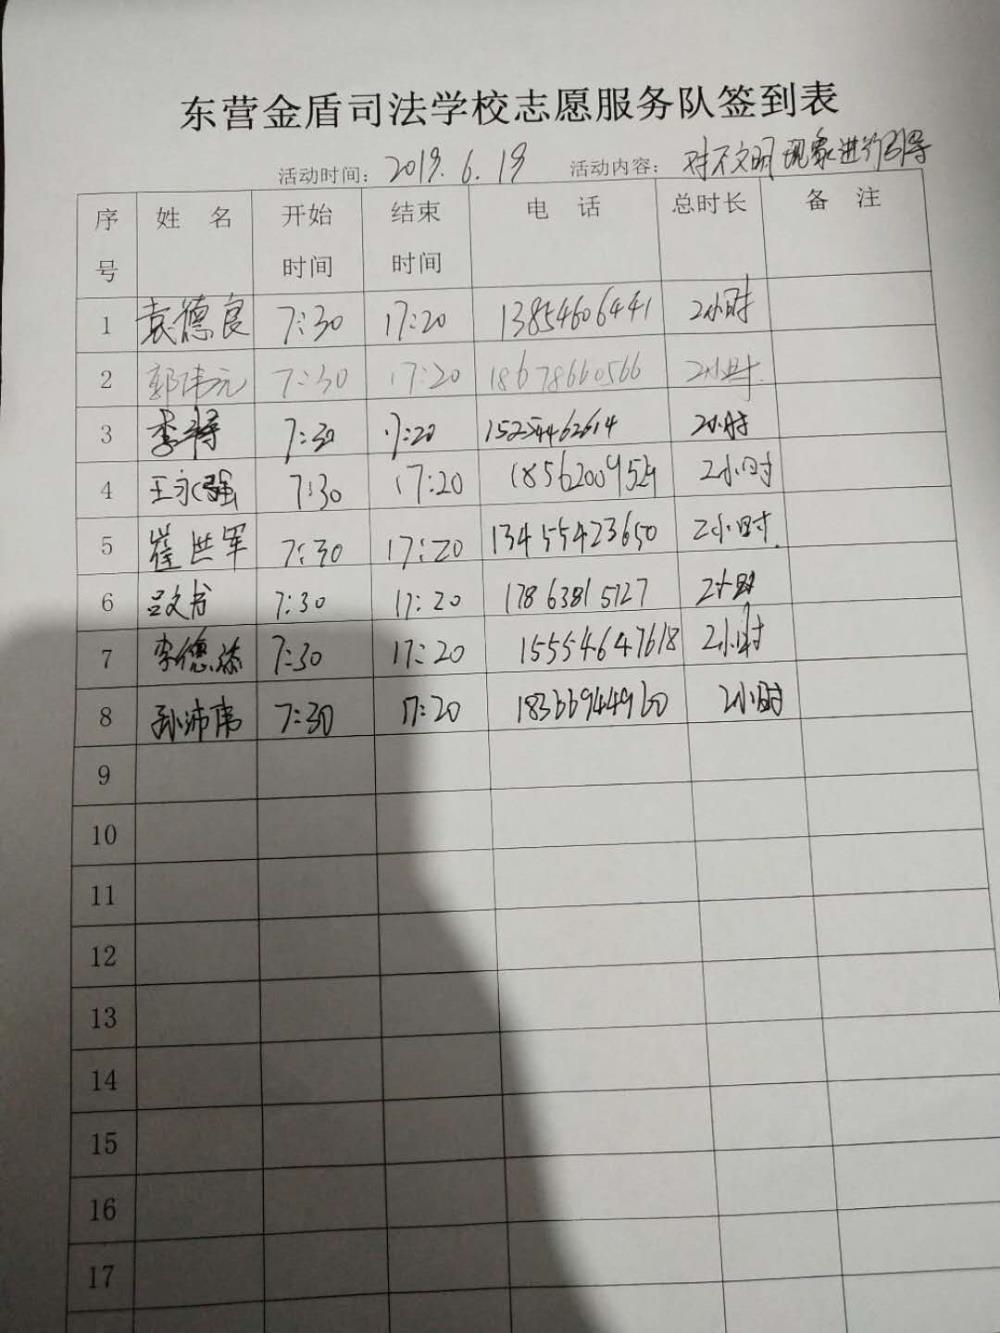 东营金盾司法学校志愿服务队签到表
活动时间: 2019.6.19 活动内容: 对不文明现象进行引导
序号 姓名 开始时间 结束时间 电话 总时长 备注
1 袁德良 7:30 17:20 13854606441 2小时
2 郭伟元 7:30 17:20 18678660566 2小时.
3 李 7:30 17:20 15254462614 2小时
4 王永强 7:30 17:20 2小时
5 崔洪军 7:30 17:20 13455423650 2小时.
6 吕文书 7:30 17:20 17863815727 2小时
7 李德 7:30 17:20 15554647618 2小时
8 孙沛伟 7:30 17:20 18366944960 2小时
9
10
11
12
13
14
15
16
17